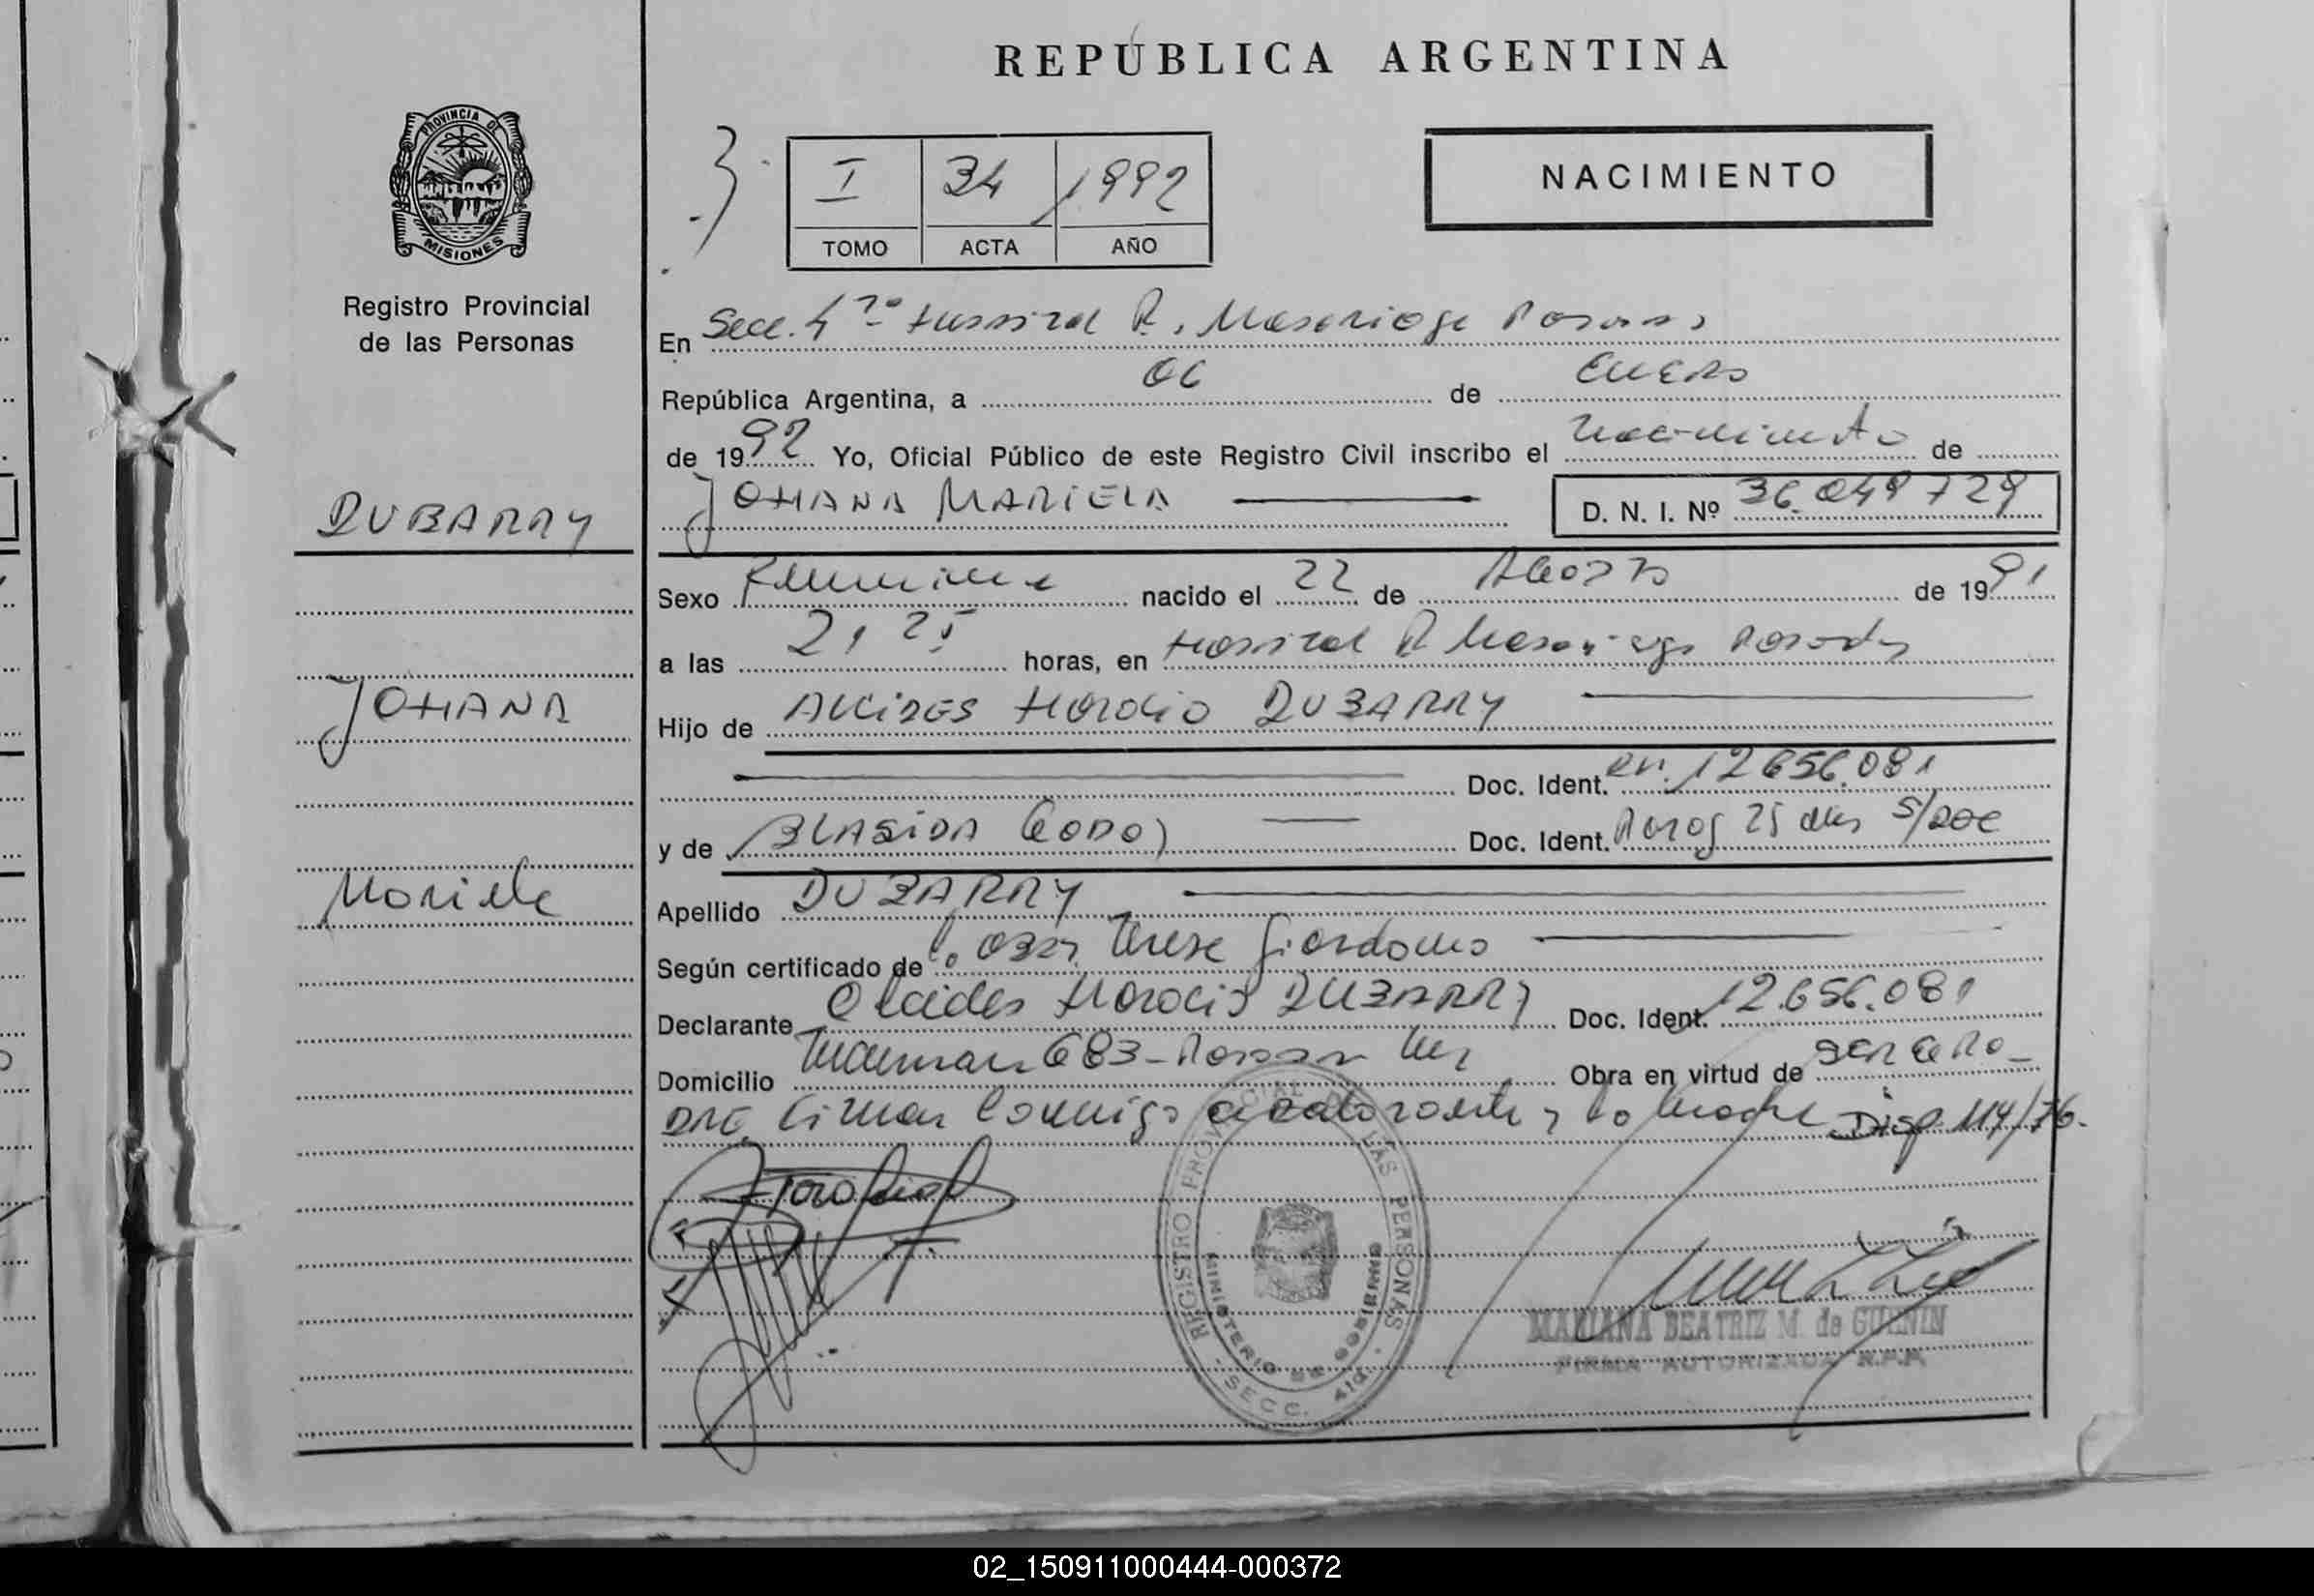 REPÚBLICA ARGENTINA
PROVINCIA DE MISIONES
Registro Provincial
de las Personas
I 34 1992
TOMO ACTA AÑO
NACIMIENTO
En Secc. 4ta Hospital R. Madariaga Posadas
República Argentina, a 06 de ENERO
de 1992 Yo, Oficial Público de este Registro Civil inscribo el nacimiento de
JOHANA MARIELA D. N. I. Nº 36.049729
DUBARRY
Sexo Femenino nacido el 22 de AGOSTO de 1991
a las 21 25 horas, en Hospital R Madariaga Posadas
JOHANA
Hijo de ALCIDES HORACIO DUBARRY
Doc. Ident. 12656.081
y de BLASIDA GODOY Doc. Ident. 25 años S/DOC
Mariela
Apellido DUBARRY
Según certificado de Teresa Giordano
Declarante Alcides Horacio DUBARRY Doc. Ident. 12.656.081
Domicilio Tucuman 683 - Obra en virtud de ser el PA-
DRE firman conmigo el declarante y la Madre Disp 114/76.
REGISTRO PROVINCIAL DE LAS PERSONAS
MINISTERIO DE GOBIERNO
SECC. 4ta.
MARIANA BEATRIZ M. de
FIRMA AUTORIZADA R.P.P.
02_150911000444-000372